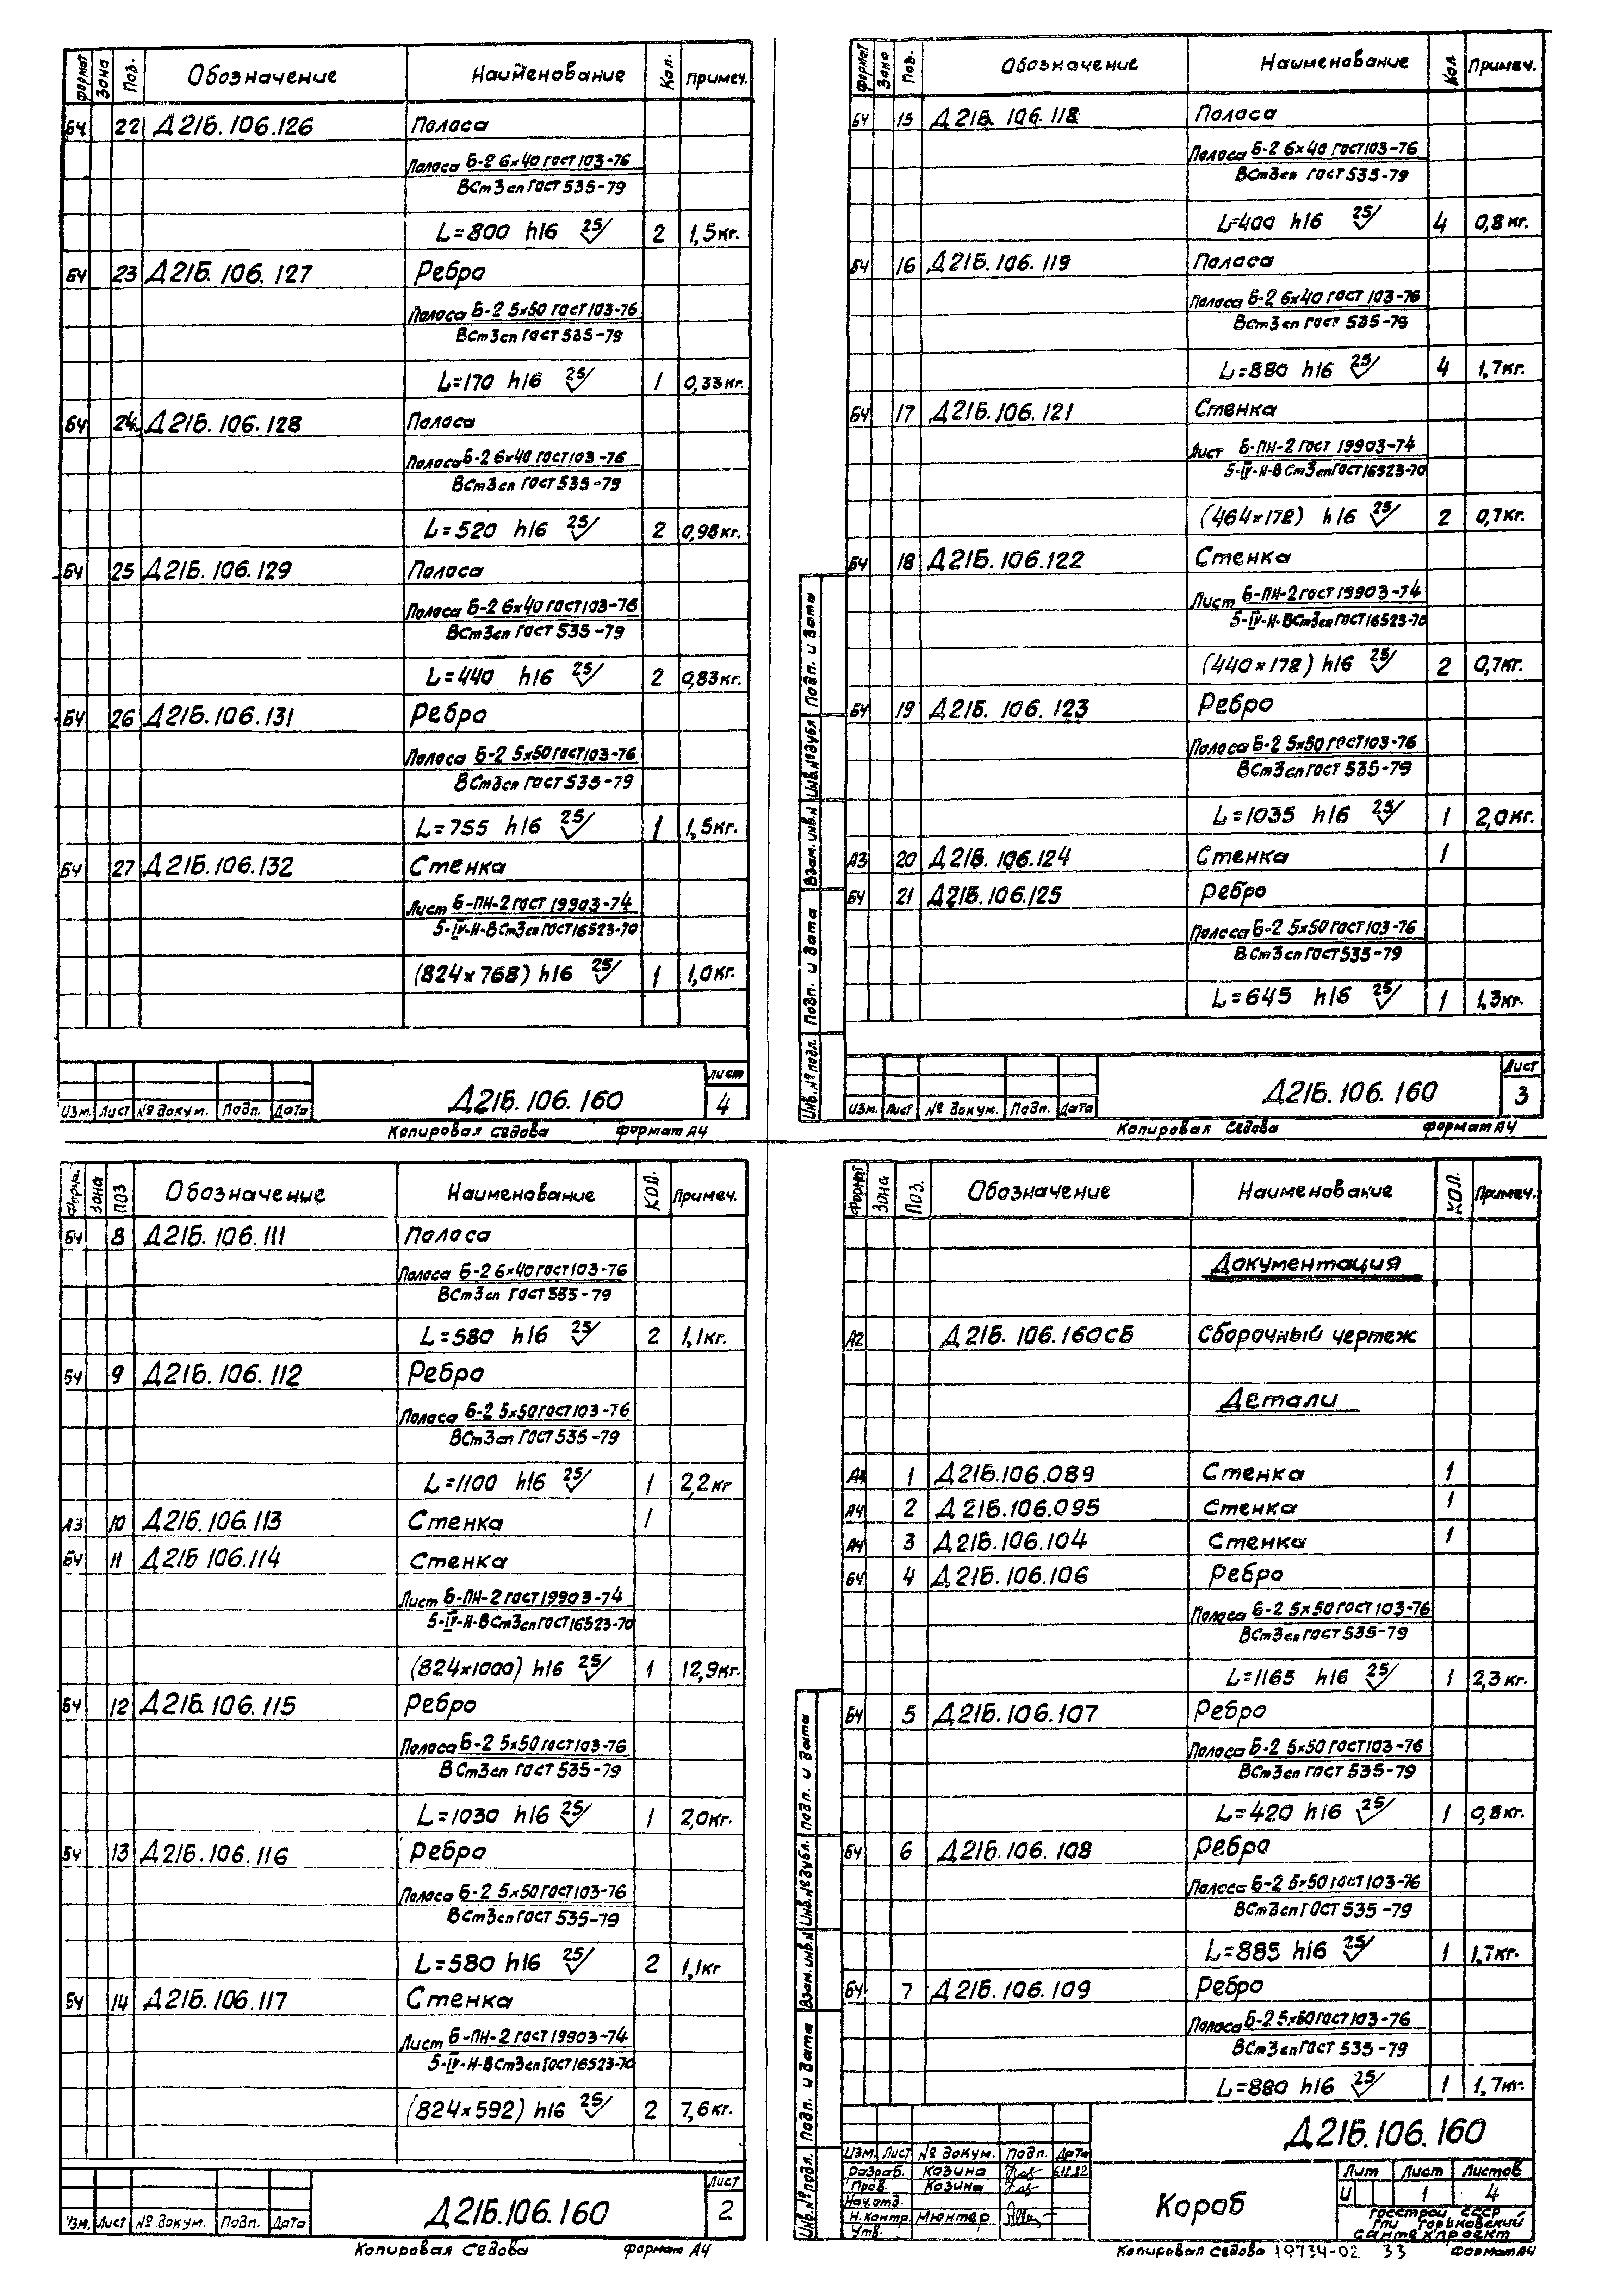 формат Зона Поз. Обозначение Наименование Кол. Примеч.
БЧ 22 Д21Б.106.126 Полоса
Полоса Б-2 6×40 ГОСТ 103-76
ВСт3сп ГОСТ 535-79
L=800 h16 25/ 2 1,5кг.
БЧ 23 Д21Б.106.127 Ребро
Полоса Б-2 5×50 ГОСТ 103-76
ВСт3сп ГОСТ 535-79
L=170 h16 25/ 1 0,33кг.
БЧ 24 Д21Б.106.128 Полоса
Полоса Б-2 6×40 ГОСТ 103-76
ВСт3сп ГОСТ 535-79
L=520 h16 25/ 2 0,98кг.
БЧ 25 Д21Б.106.129 Полоса
Полоса Б-2 6×40 ГОСТ 103-76
ВСт3сп ГОСТ 535-79
L=440 h16 25/ 2 0,83кг.
БЧ 26 Д21Б.106.131 Ребро
Полоса Б-2 5×50 ГОСТ 103-76
ВСт3сп ГОСТ 535-79
L=755 h16 25/ 1 1,5кг.
БЧ 27 Д21Б.106.132 Стенка
Лист Б-ПН-2 ГОСТ 19903-74
5-IV-Н-ВСт3сп ГОСТ 16523-70
(824×768) h16 25/ 1 1,0кг.
Изм. Лист № докум. Подп. Дата Д21Б.106.160 Лист 4
Копировал Седова формат А4
формат Зона Поз. Обозначение Наименование Кол Примеч.
БЧ 15 Д21Б.106.118 Полоса
Полоса Б-2 6×40 ГОСТ 103-76
ВСт3сп ГОСТ 535-79
L=400 h16 25/ 4 0,8кг.
БЧ 16 Д21Б.106.119 Полоса
Полоса Б-2 6×40 ГОСТ 103-76
ВСт3сп ГОСТ 535-79
L=880 h16 25/ 4 1,7кг.
БЧ 17 Д21Б.106.121 Стенка
Лист Б-ПН-2 ГОСТ 19903-74
5-IV-Н-ВСт3сп ГОСТ 16523-70
(464×172) h16 25/ 2 0,7кг.
БЧ 18 Д21Б.106.122 Стенка
Лист Б-ПН-2 ГОСТ 19903-74
5-IV-Н-ВСт3сп ГОСТ 16523-70
(440×172) h16 25/ 2 0,7кг.
БЧ 19 Д21Б.106.123 Ребро
Полоса Б-2 5×50 ГОСТ 103-76
ВСт3сп ГОСТ 535-79
L=1035 h16 25/ 1 2,0кг.
А3 20 Д21Б.106.124 Стенка 1
БЧ 21 Д21Б.106.125 Ребро
Полоса Б-2 5×50 ГОСТ 103-76
ВСт3сп ГОСТ 535-79
L=645 h16 25/ 1 1,3кг.
Инв.№ подл. Подп. и дата Взам.инв.№ Инв.№ дубл Подп. и дата
Изм. Лист № докум. Подп. Дата Д21Б.106.160 Лист 3
Копировал Седова формат А4
Форм. Зона ПОЗ Обозначение Наименование КОЛ. Примеч.
БЧ 8 Д21Б.106.111 Полоса
Полоса Б-2 6×40 ГОСТ 103-76
ВСт3сп ГОСТ 535-79
L=580 h16 25/ 2 1,1кг.
БЧ 9 Д21Б.106.112 Ребро
Полоса Б-2 5×50 ГОСТ 103-76
ВСт3сп ГОСТ 535-79
L=1100 h16 25/ 1 2,2кг
А3 10 Д21Б.106.113 Стенка 1
БЧ 11 Д21Б 106.114 Стенка
Лист Б-ПН-2 ГОСТ 19903-74
5-IV-Н-ВСт3сп ГОСТ 16523-70
(824×1000) h16 25/ 1 12,9кг.
БЧ 12 Д21Б.106.115 Ребро
Полоса Б-2 5×50 ГОСТ 103-76
ВСт3сп ГОСТ 535-79
L=1030 h16 25/ 1 2,0кг.
БЧ 13 Д21Б.106.116 Ребро
Полоса Б-2 5×50 ГОСТ 103-76
ВСт3сп ГОСТ 535-79
L=580 h16 25/ 2 1,1кг
БЧ 14 Д21Б.106.117 Стенка
Лист Б-ПН-2 ГОСТ 19903-74
5-IV-Н-ВСт3сп ГОСТ 16523-70
(824×592) h16 25/ 2 7,6кг.
Изм. Лист № докум. Подп. Дата Д21Б.106.160 Лист 2
Копировал Седова формат А4
Формат Зона Поз. Обозначение Наименование КОЛ. Примеч.
Документация
А2 Д21Б.106.160СБ Сборочный чертеж
Детали
1 Д21Б.106.089 Стенка 1
А4 2 Д21Б.106.095 Стенка 1
А4 3 Д21Б.106.104 Стенка 1
БЧ 4 Д21Б.106.106 Ребро
Полоса Б-2 5×50 ГОСТ 103-76
ВСт3сп ГОСТ 535-79
L=1165 h16 25/ 1 2,3кг.
БЧ 5 Д21Б.106.107 Ребро
Полоса Б-2 5×50 ГОСТ 103-76
ВСт3сп ГОСТ 535-79
L=420 h16 25/ 1 0,8кг.
БЧ 6 Д21Б.106.108 Ребро
Полоса Б-2 5×50 ГОСТ 103-76
ВСт3сп ГОСТ 535-79
L=885 h16 25/ 1 1,7кг.
БЧ 7 Д21Б.106.109 Ребро
Полоса Б-2 5×50 ГОСТ 103-76
ВСт3сп ГОСТ 535-79
L=880 h16 25/ 1 1,7кг.
Инв.№ подл. Подп. и дата Взам.инв.№ Инв.№ дубл. Подп. и дата
Д21Б.106.160
Изм. Лист № докум. Подп. Дата
Разраб. Козина 6.12.82
Пров. Козина
Нач.отд.
Н.контр. Мюнтер
Утв.
Короб
Лит Лист Листов
И 1 4
Госстрой СССР
ГПИ Горьковский
Сантехпроект
Копировал Седова 19734-02 33 Формат А4